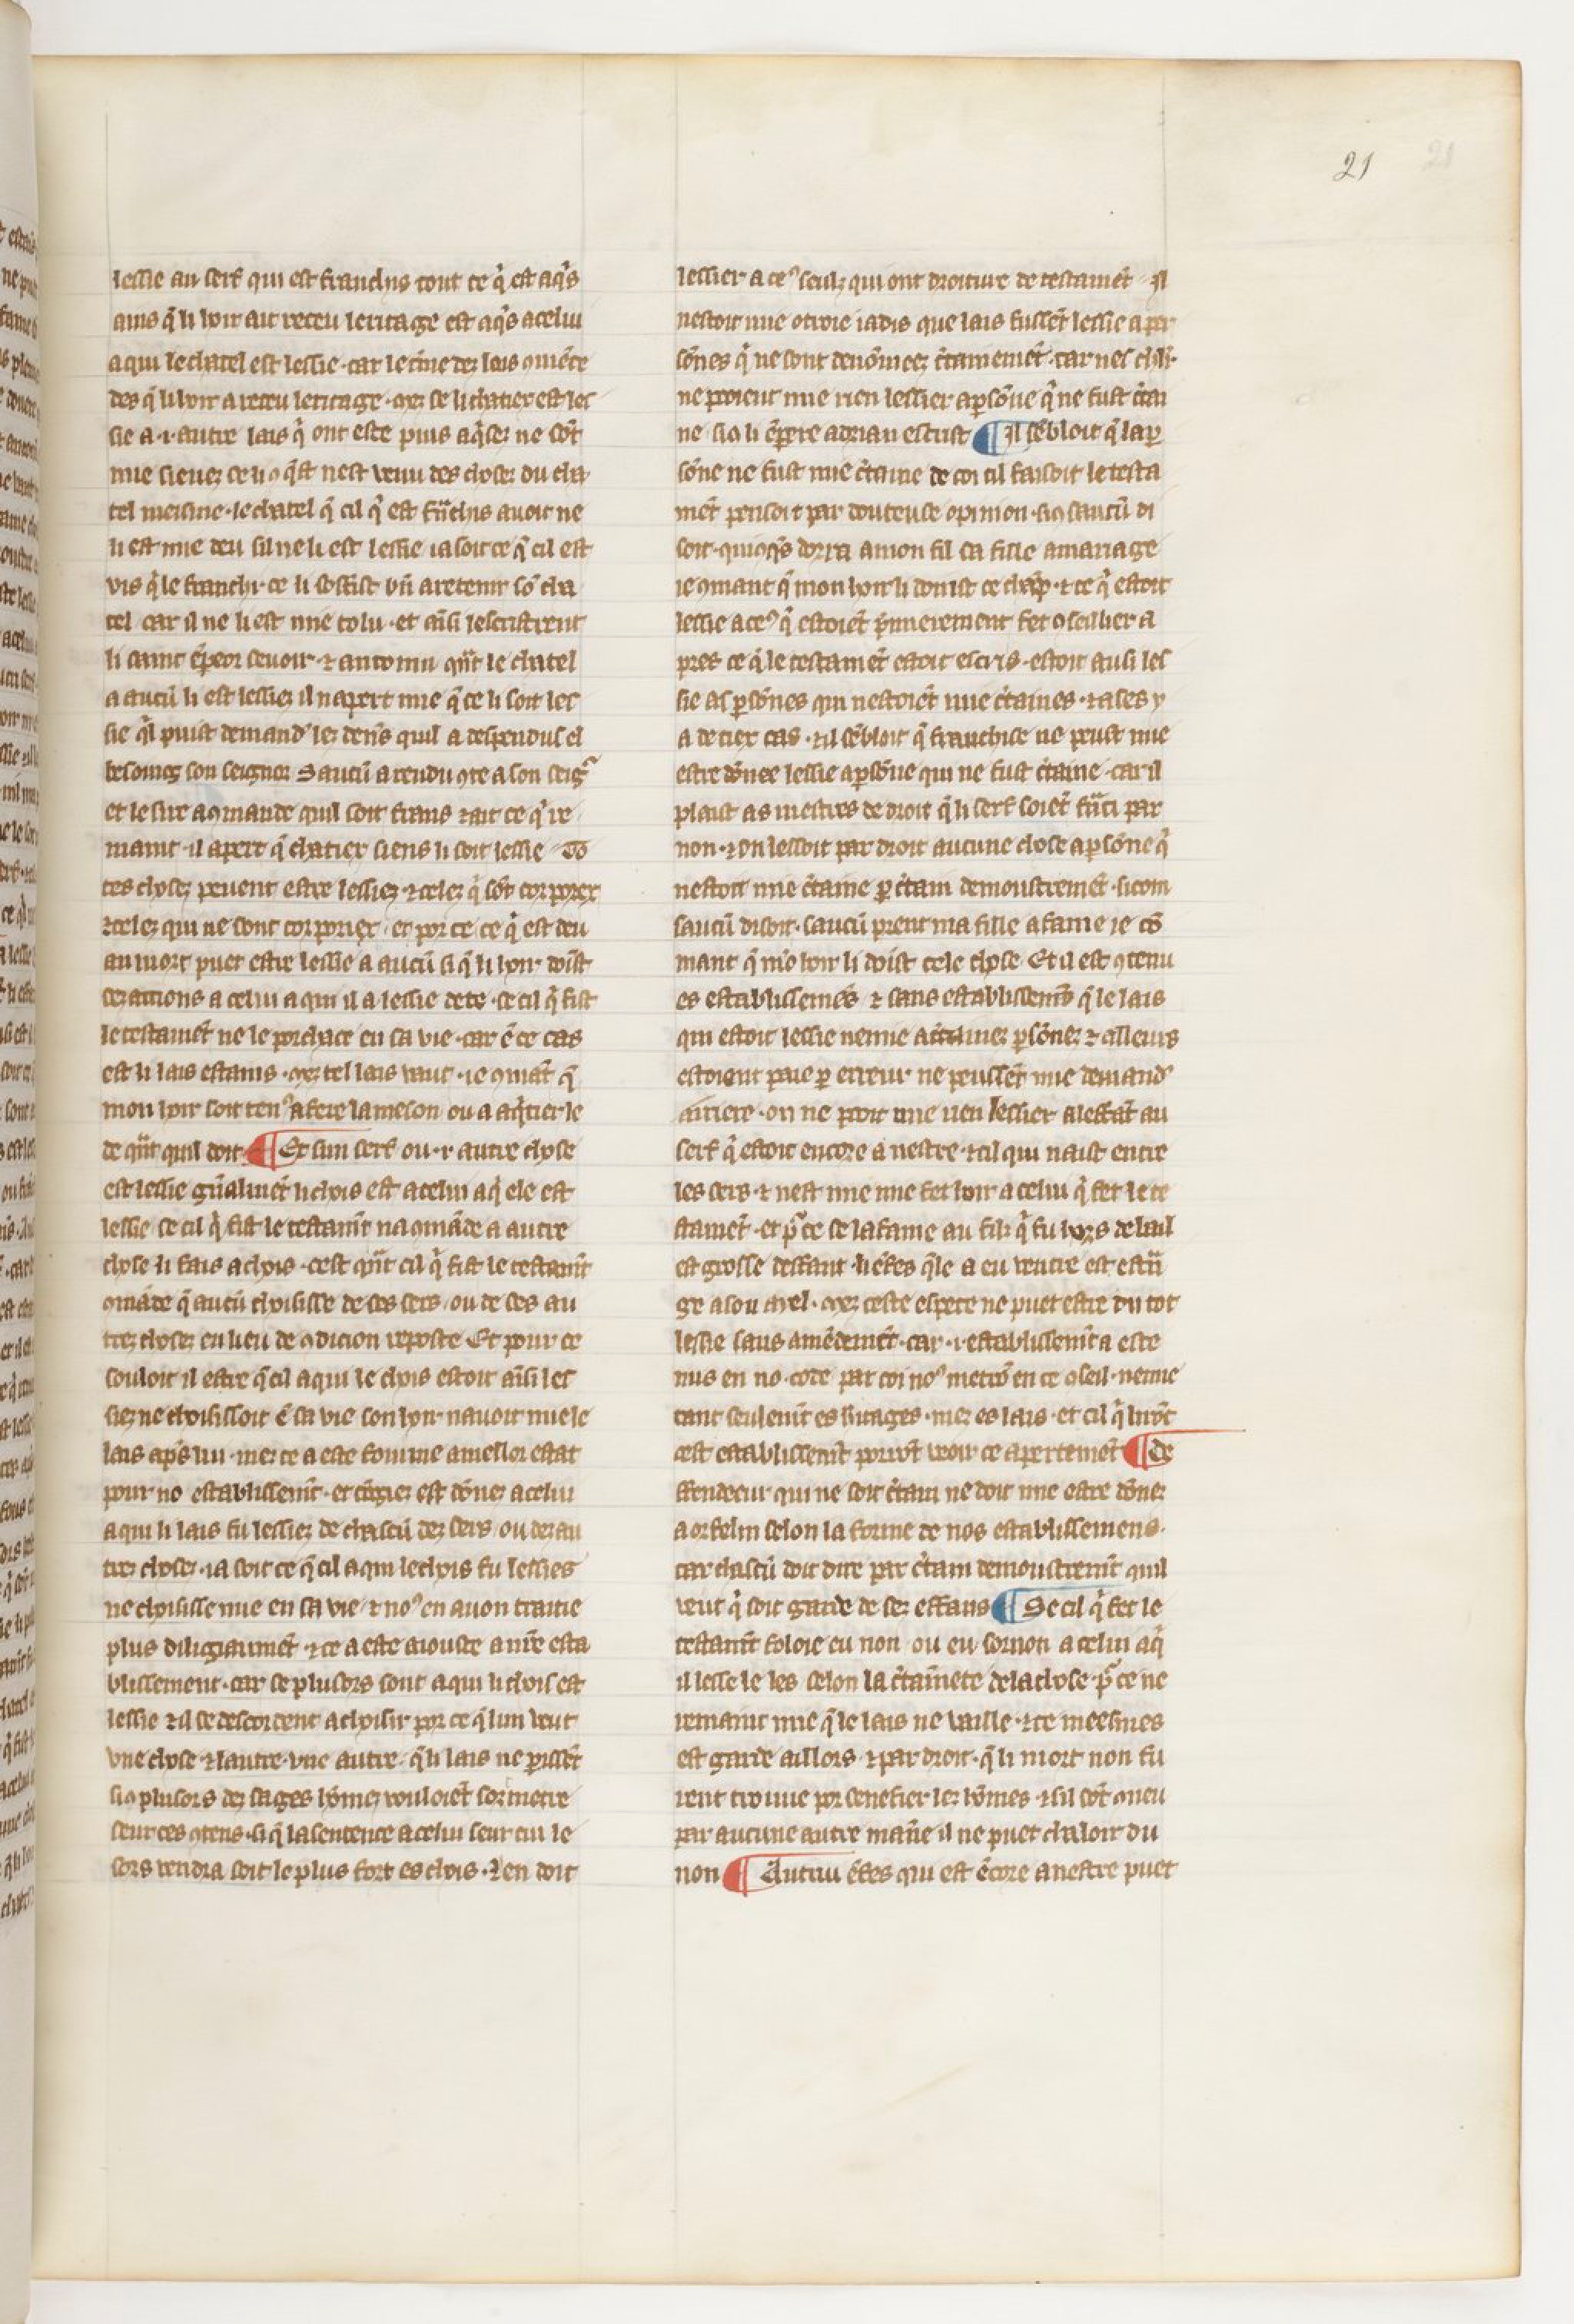 21
lessie au serf qui est franchis tout ce q̇ est aq̇s
ains q̃ li hoir ait receu leritage est aq̇s a celui
a qui le chatel est lessie · car le t̃me dez lais 9mẽce
des q̃ li hoir a receu leritage · mez se li chatiex est les
sie a · i · autre lais q̇ ont este puis aq̇sez ne sõt
mie sienez ce li 9q̇st nest venu des chosez du cha
tel meisme · le chatel q̃ cil q̇ est frãchis auoit ne
li est mie deu sil ne li est lessie ia soit ce q̃ cil est
vis q̇ le franchi · ce li soffist bñ a retenir sõ cha
tel car il ne li est mie tolu · et aĩsi lescristrent
li saint ẽpeor seuoir ⁊ antonin qãt le chatel
a aucũ li est lessiez il napert mie q̃ ce li soit les
sie q̇l puist demand᾽ lez deñs quil a despendus el
besoinez son seigneur Saucũ a rendu 9te a son seig̃
et le sire a 9mande quil soit frans ⁊ ait ce q̇ re
maint · il apert q̃ chatiex siens li soit lessie · To
tes chosez peuent estre lessiez ⁊ celez q̇ sõt corporex
⁊ celez qui ne sont corporiex · et por ce ce q̇ est deu
au mort puet estre lessie a aucũ si q̃ li hoir doĩst
sez actions a celui a qui il a lessie dete · se cil q̇ fist
le testamẽt ne le porchace en sa vie · car ẽ ce cas
est li lais estains · mez tel lais vaut · ie 9mãt q̃
mon hoir soit ten⁹ a fere la meson ou a aq̇tier le
de qãt quil doit ¶ Et sun serf ou · i · autre chose
est lessie gñalmẽt li chois est a celui a q̇ ele est
lessie se cil q̇ fist le testam̃t na 9mãde a autre
chose li fais a chois · cest qãt cil q̇ fist le testam̃t
9mãde q̃ aucũ choisisse de ses sers · ou de ses au
trez chosez en lieu de 9dicion reposte Et pour ce
souloit il estre q̃ cil a qui le chois estoit aĩsi les
siez ne choisissoit ẽ sa vie son hoir nauoit mie le
lais ap̃s lui · mez ce a este fomme a mellor estat
pour no establissem̃t · et cõgiez est dõnez a celui
a qui li lais fu lessiez de chascũ dez sers · ou dez au
trez chosez · ia soit ce q̃ cil a qui le chois fu lessies
ne choisisse mie en sa vie · ⁊ no⁹ en auon traitie
plus diligiaumẽt · ⁊ ce a este aiouste a nr̃e esta
blissement · car se plusors sont a qui li chois est
lessie ⁊ il se descordent a choisir por ce q̃ lun veut
vne chose · ⁊ lautre · vne autre · q̃ li lais ne pissẽt
si 9 plusors dez sages hõmez vouloiẽt sormetre
seur ces 9tens · si q̃ la sentence a celui seur cui le
sors vendra soit le plus fort es chois · Len doit
lessier a ce⁹ seulz qui ont droiture de testamẽt · Il
nestoit mie otroie iadis que lais fussẽt lessie a per
sõnes q̇ ne sont denõmeez c̃tainemẽt · car nes chl̃r
ne pooient mie rien lessier a p̱sõne q̇ ne fust c̃tai
ne · si 9 li ẽpere adrian escrist ¶ Il sẽbloit q̃ la p̱
sõne ne fust mie c̃taine de coi cil faisoit le testa
mẽt pensoit par douteuse opinion · si 9 saucũ di
soit · qui 9q̇s dorra a mon fil sa fille a mariage
ie 9mant q̃ mon hoir li doint ce chãp · ⁊ ce q̇ estoit
lessie a ce⁹ q̇ estoiẽt p̃mierement fet 9seillier a
pres ce q̃ le testamẽt estoit escris · estoit ausi les
sie as p̱sõnes qui nestoiẽt mie c̃taines · ⁊ ases y
a de tiex cas · ⁊ il sẽbloit q̃ franchise ne peust mie
estre dõnee lessie a p̱sõne qui ne fust c̃taine · car il
plaist as mestres de droit q̃ li serf soiẽt frãci par
non · ⁊ on lessoit par droit aucune chose a p̱sõne q̇
nestoit mie c̃taine p̱ c̃tain demoustremẽt · si com
saucũ disoit · saucũ prent ma fille a fame ie cõ
mant q̃ mõ hoir li doist cele chose Et il est 9tenu
es establissemẽs ⁊ sans establissemẽs q̃ le lais
qui estoit lessie nennie a c̃tainez p̱sõnez ⁊ ailleurs
estoient paie p̱ erreur ne peussẽt mie demand᾽
arriere · on ne pooit mie rien lessier a leffãt au
serf q̇ estoit encore a nestre · ⁊ cil qui naist entre
les sers · ⁊ nest mie mie fet hoir a celui q̇ fet le te
stamẽt · et p̃ ce se la fame au filz q̇ fu hors de lail
est grosse deffant · li ẽfes q̃le a eu ventre est estrã
ge a sou aiel · mez ceste espece ne puet estre du tot
lessie sans amẽdemẽt · car · i · establissem̃t a este
mis en no · code par coi no⁹ metõ en ce 9seil · nennie
tant seulem̃t es h̃itages · mez es lais · et cil q̇ lirõt
cest establissem̃t porrõt veoir ce apertemẽt ¶ de
ffendeeur qui ne soit c̃tain ne doit mie estre dõnez
a orfelin selon la forme de nos establissemens ·
car chascũ doit dire par c̃tain demoustrem̃t quil
veut q̇ soit garde de sez effans ¶ Se cil q̇ fet le
testam̃t foloie eu non · ou eu sornon a celui a q̇
il lesse le les selon la c̃taĩnete de la chose · p̃ ce ne
remaint mie q̃ le lais ne vaille · ⁊ ce meesmes
est garde aillors · ⁊ par droit · q̃ li mort non fu
rent trouue por senefier lez hõmes · ⁊ sil sõt 9neu
par aucune autre mañe il ne puet chaloir du
non ¶ Autrui ẽfes qui est ẽcore a nestre puet